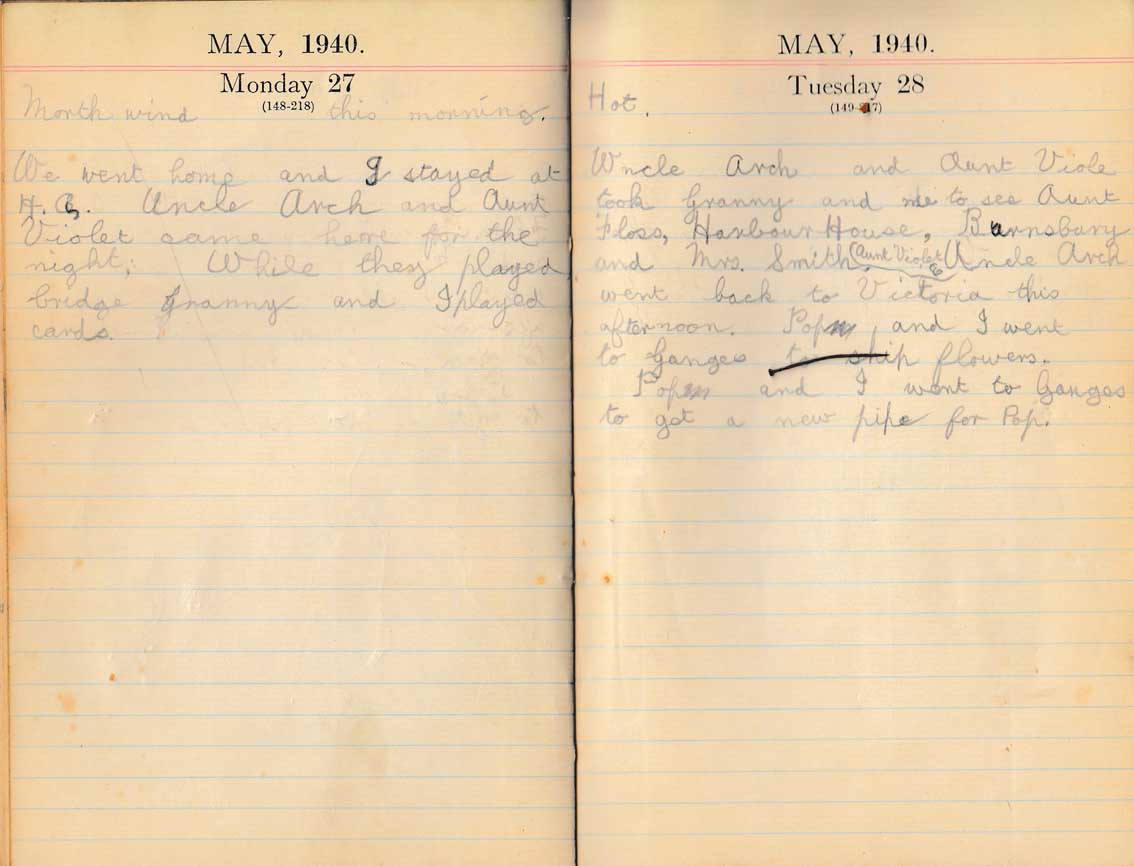 MAY, 1940.
Monday 27
(148-218)
North wind this morning.
We went home and I stayed at
H. B. Uncle Arch and Aunt
Violet came here for the
night; While they played
bridge Granny and I played
cards.
MAY, 1940.
Tuesday 28
(149-217)
Hot.
Uncle Arch and Aunt Viole
took Granny and me to see Aunt
Floss, Harbour House, Barnsbury
and Mrs. Smith. (Aunt Violet &) Uncle Arch
went back to Victoria this
afternoon. Pop and I went
to Ganges to ship flowers.
Pop and I went to Ganges
to get a new pipe for Pop.